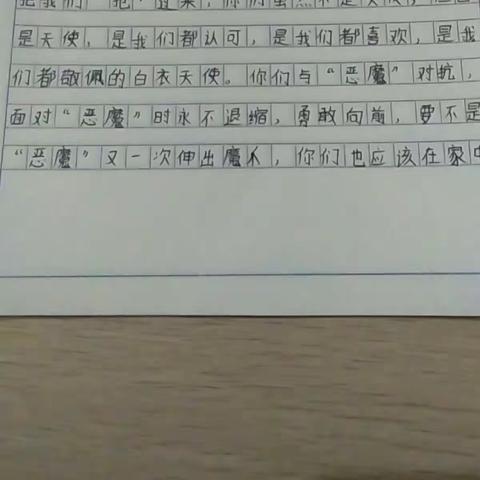 是天使，是我们都认可，是我们都喜欢，是我
们都敬佩的白衣天使。你们与“恶魔”对抗，
面对“恶魔”时永不退缩，勇敢向前，要不是
“恶魔”又一次伸出魔爪，你们也应该在家中